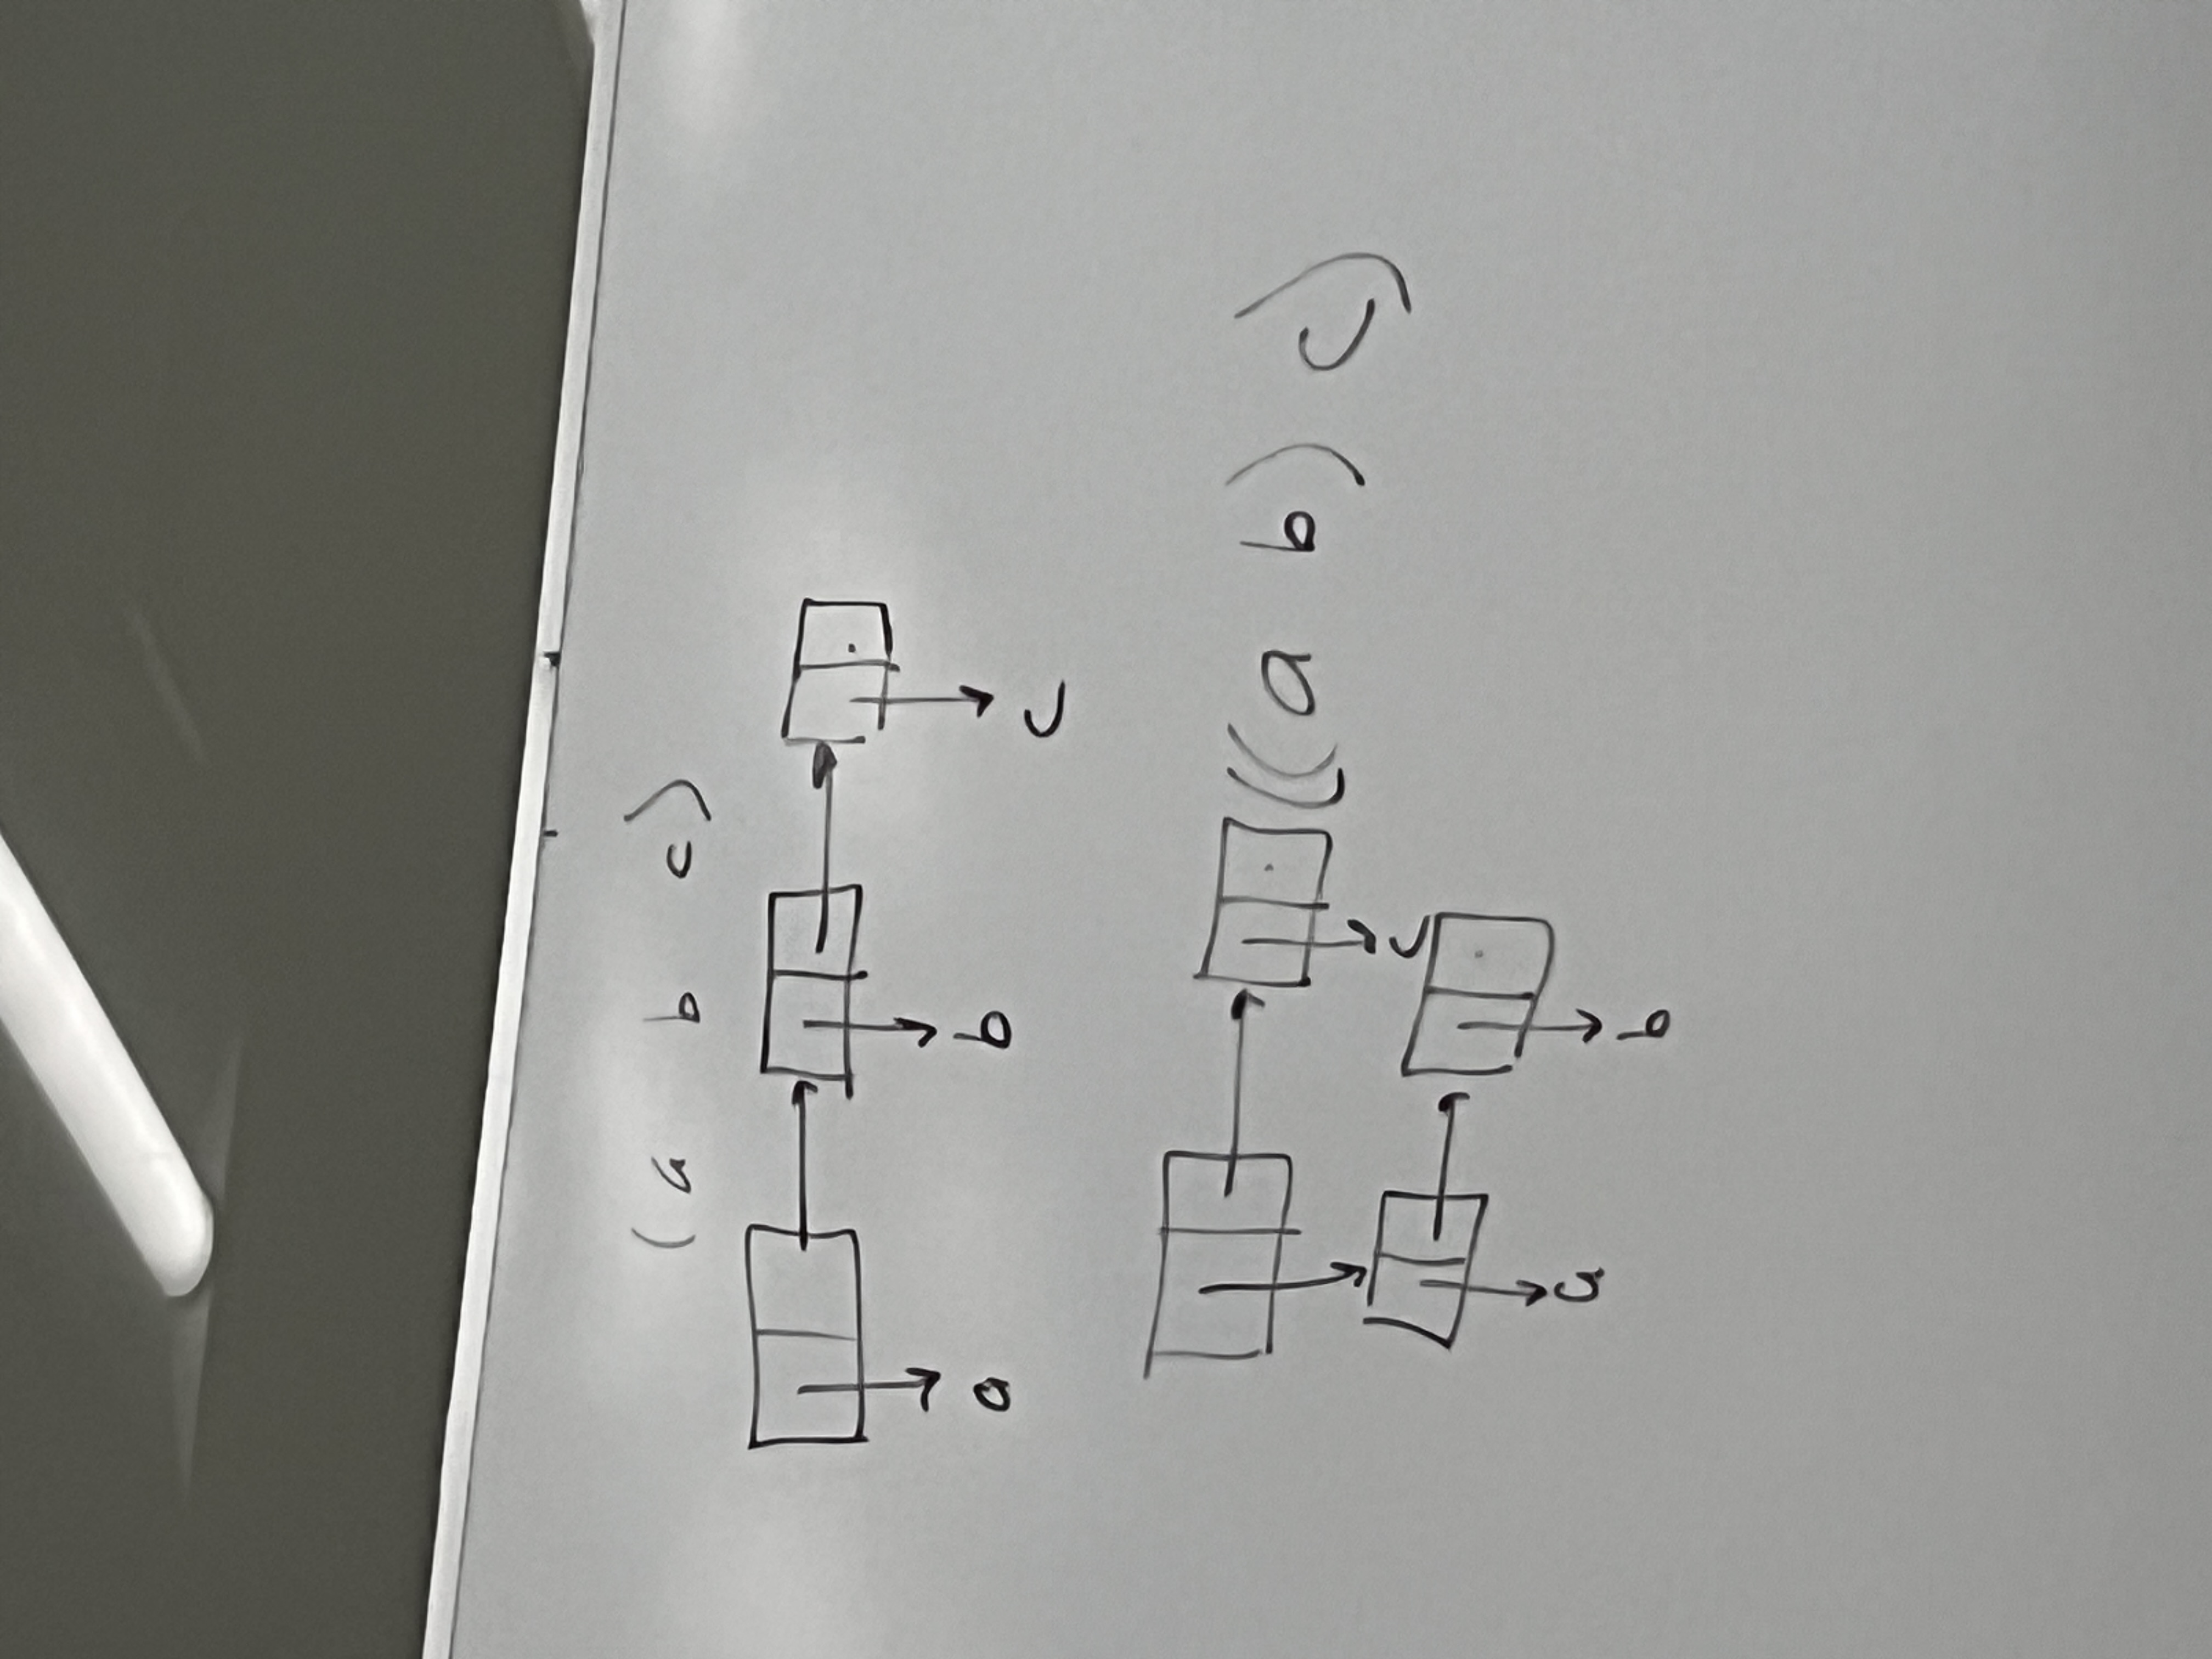 (a b c)
a b c
((a b) c)
c
a
b